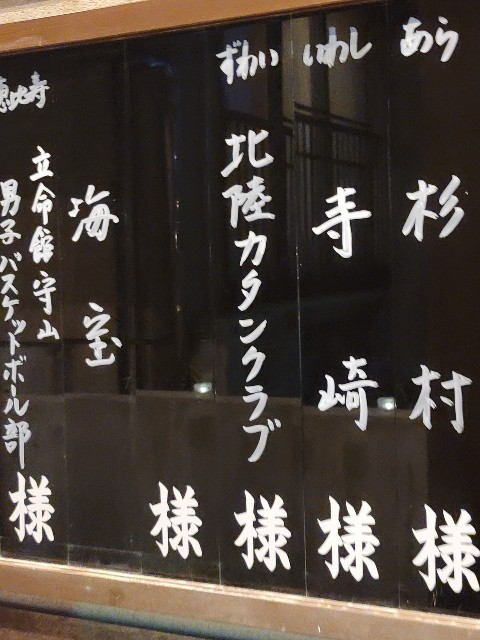 あら
杉村様
いわし
寺崎様
ずわい
北陸カタンクラブ様
様
海宝
恵比寿
立命館守山
男子バスケットボール部
様